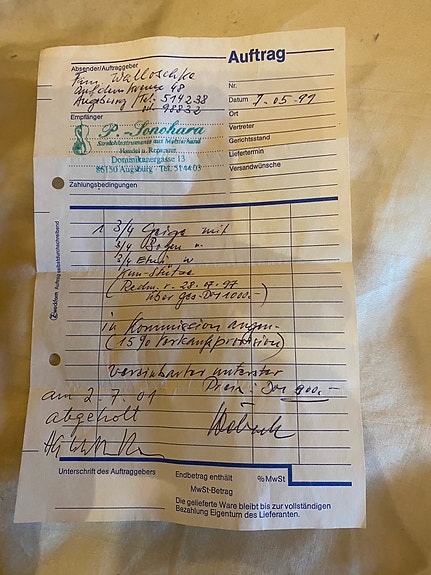 Auftrag
Absender/Auftraggeber
Frau Walloschke
48
Augsburg /Tel. 514238
98832
Nr.
Datum 7.05.99
Ort
Empfänger
Vertreter
P. Sonohara
Gerichtsstand
Streichinstrumente aus Meisterhand
Handel u. Reparatur
Liefertermin
Dominikanergasse 13
Versandwünsche
86150 Augsburg · Tel. 5 14 4 03
Zahlungsbedingungen
1 3/4 Geige mit
3/4 Bogen u.
3/4 Etui u.
Kinnstütze
(Rechn. v. 28.07.97
über ges. DM 1000.-)
in Kommission angen.
(15% Verkaufsprovision)
Vereinbarter unterster
Preis: DM 900.-
am 2.7.01
abgeholt
Unterschrift des Auftraggebers
Endbetrag enthält % MwSt
MwSt-Betrag
Die gelieferte Ware bleibt bis zur vollständigen
Bezahlung Eigentum des Lieferanten.